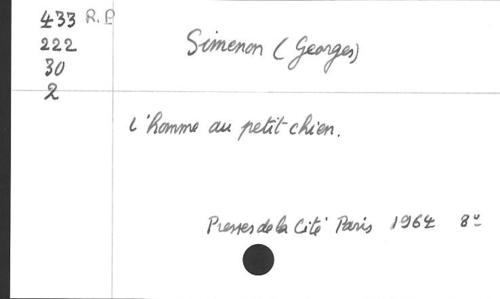 433 R.P
222
30
2
Simenon (Georges)
L'homme au petit-chien.
Presses de la Cité Paris 1964 8°